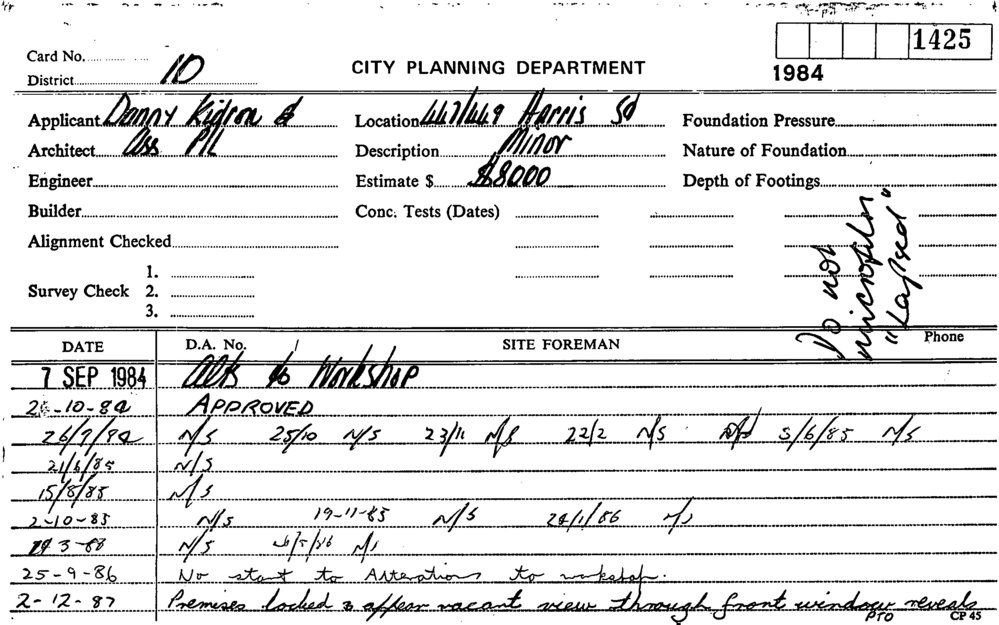 1425
Card No.
District 10
CITY PLANNING DEPARTMENT
1984
Applicant Danny Kidron & Location 447/449 Harris Sd Foundation Pressure
Architect Ass P/L Description Minor Nature of Foundation
Engineer Estimate $ $8000 Depth of Footings
Builder Conc. Tests (Dates)
Alignment Checked
1.
Survey Check 2.
3.
Do not
microfilm
"Lapsed"
DATE D.A. No. SITE FOREMAN Phone
7 SEP 1984 Alts to Workshop
-10-84 APPROVED
N/S 25/10 N/S 23/11 N/S 22/2 N/S 5/6/85 N/S
21/6/85 N/S
15/8/85 N/S
2-10-85 N/S 19-11-85 N/S 1/86 N/S
N/S N/S
25-9-86 No start to Alterations to workshop.
2-12-87 Premises locked & appear vacant view through front window reveals
PTO CP 45